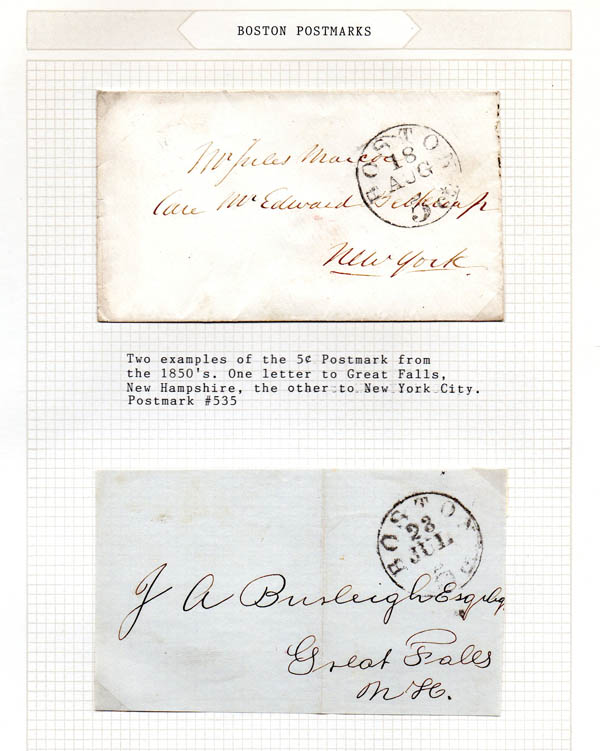 BOSTON POSTMARKS
Mr Jules Marcou
Care Mr Edward
New York
BOSTON
18
AUG
5
Two examples of the 5¢ Postmark from
the 1850's. One letter to Great Falls,
New Hampshire, the other to New York City.
Postmark #535
BOSTON
23
JUL
J A Burleigh Esq
Great Falls
N H.